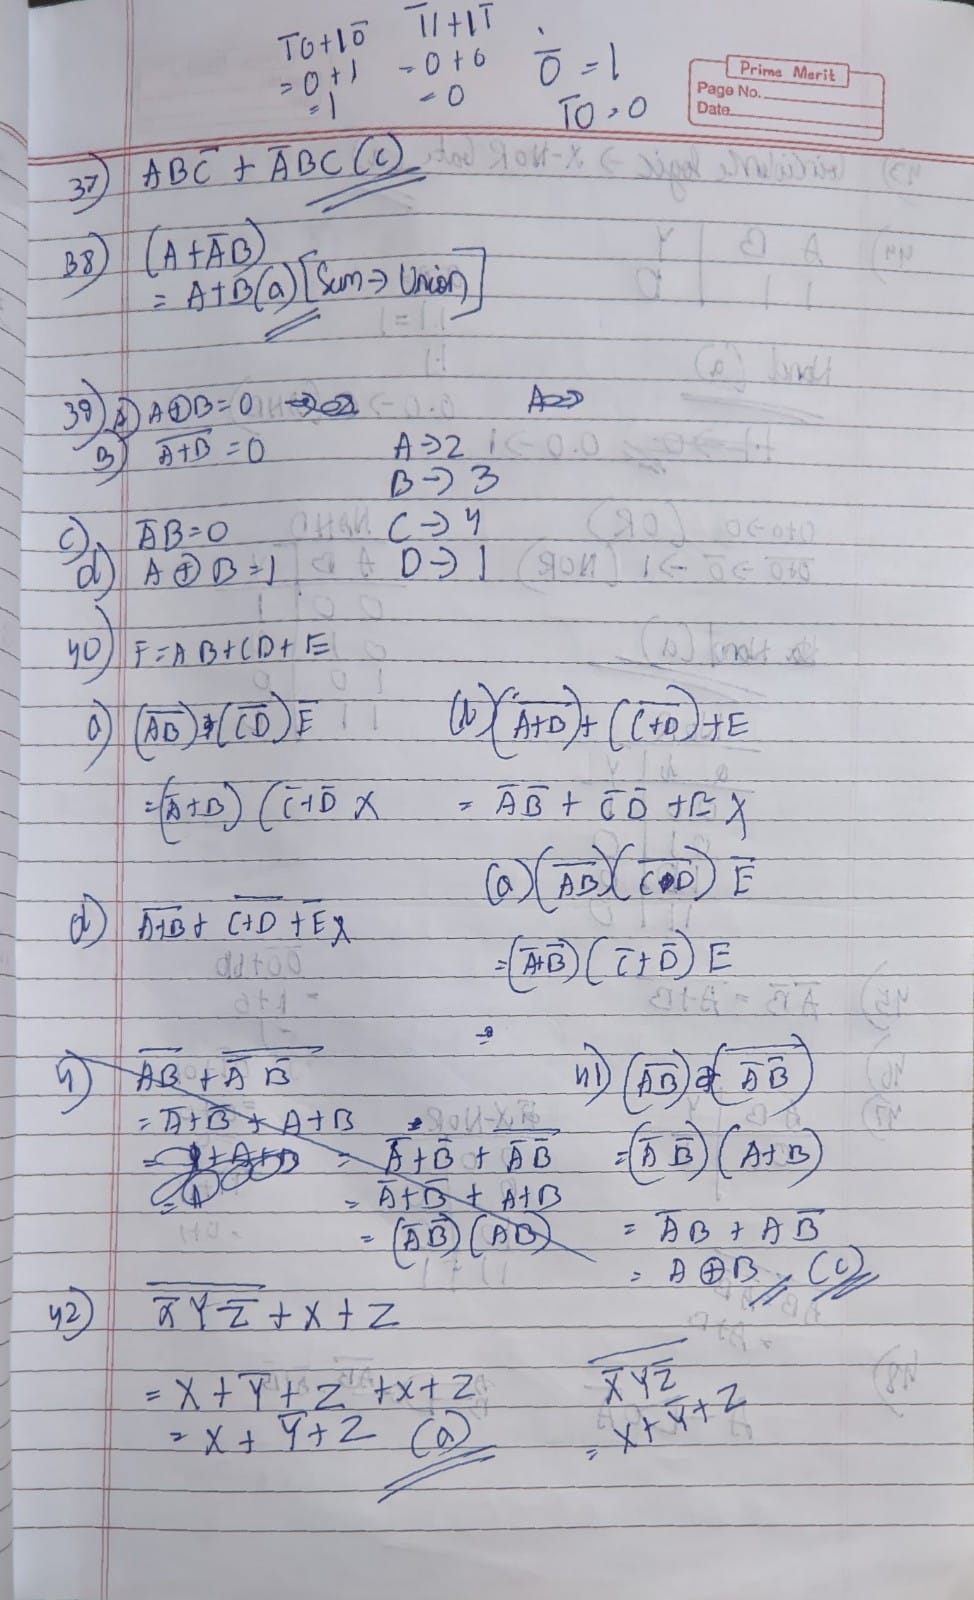 1̅0+10̅ 1̅1+11̅
=0+1 =0+0 0̅ =1
=1 =0 1̅0=0
Prime Merit
Page No.
Date
37) ABC̅ + A̅BC (c)
38) (A+A̅B)
= A+B (a) [Sum→ Union]
39) A) A⊕B=0
B) \overline{A+B} =0 A→2
B→3
C) A̅B=0 C→4
d) A⊕B=1 D→1
40) F=AB+CD+E
c) (\overline{AB})+(\overline{CD})E̅ (b) (\overline{A+B})+(\overline{C+D})+E
=(A̅+B) (C̅+D̅ X = A̅B̅ + C̅D̅ +E X
(a) (\overline{AB})(\overline{CD}) E̅
d) \overline{A+B}+ \overline{C+D} +E̅ X
=(A̅+B̅)(C̅+D̅) E
41) \overline{AB} + \overline{A̅ B̅} 41) (\overline{AB}) (\overline{A̅ B̅})
=A̅+B̅ + A+B
= A̅+B̅ + \overline{A̅B̅} =(A̅ B̅)(A+B)
=A = A̅+B̅ + A+B
= (A̅B̅)(AB) = A̅B + AB̅
= A⊕B (c)
42) \overline{X̅YZ̅} + X + Z
= X+Y̅+Z +X+Z \overline{X̅YZ̅}
= X+Y̅+Z (a) = X+Y̅+Z